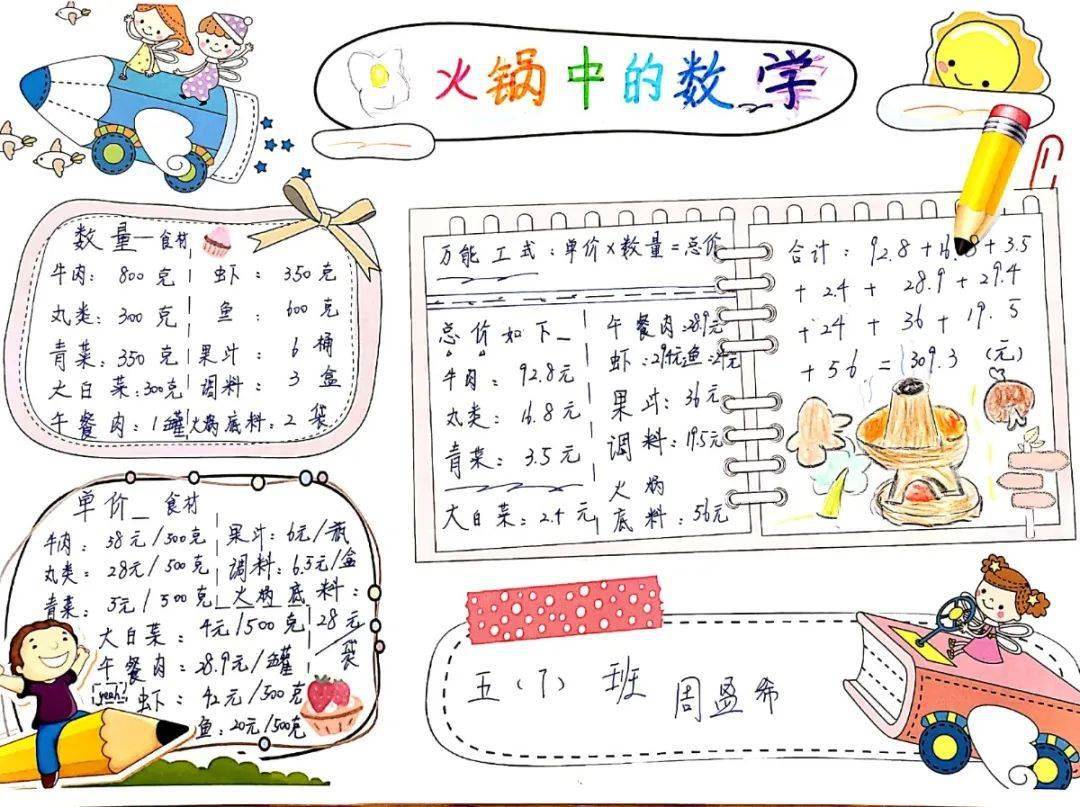 火锅中的数学
数量—食材
牛肉：800克 虾：350克
丸类：300克 鱼：600克
青菜：350克 果汁：6桶
大白菜：300克 调料：3盒
午餐肉：1罐 火锅底料：2袋
单价—食材
牛肉：58元/500克 果汁：6元/瓶
丸类：28元/500克 调料：6.5元/盒
青菜：5元/500克 火锅底料：
大白菜：4元/500克 28元/袋
午餐肉：28.9元/罐
yeah!
虾：42元/500克
鱼：20元/500克
万能工式：单价×数量=总价
总价如下_
牛肉：92.8元
丸类：16.8元
青菜：3.5元
大白菜：2.4元
午餐肉：28.9元
虾：29.4元 鱼：24元
果汁：36元
调料：19.5元
火锅
底料：56元
合计：92.8+16.8+3.5
+2.4+28.9+29.4
+24+36+19.5
+56=309.3（元）
五（7）班 周盈希